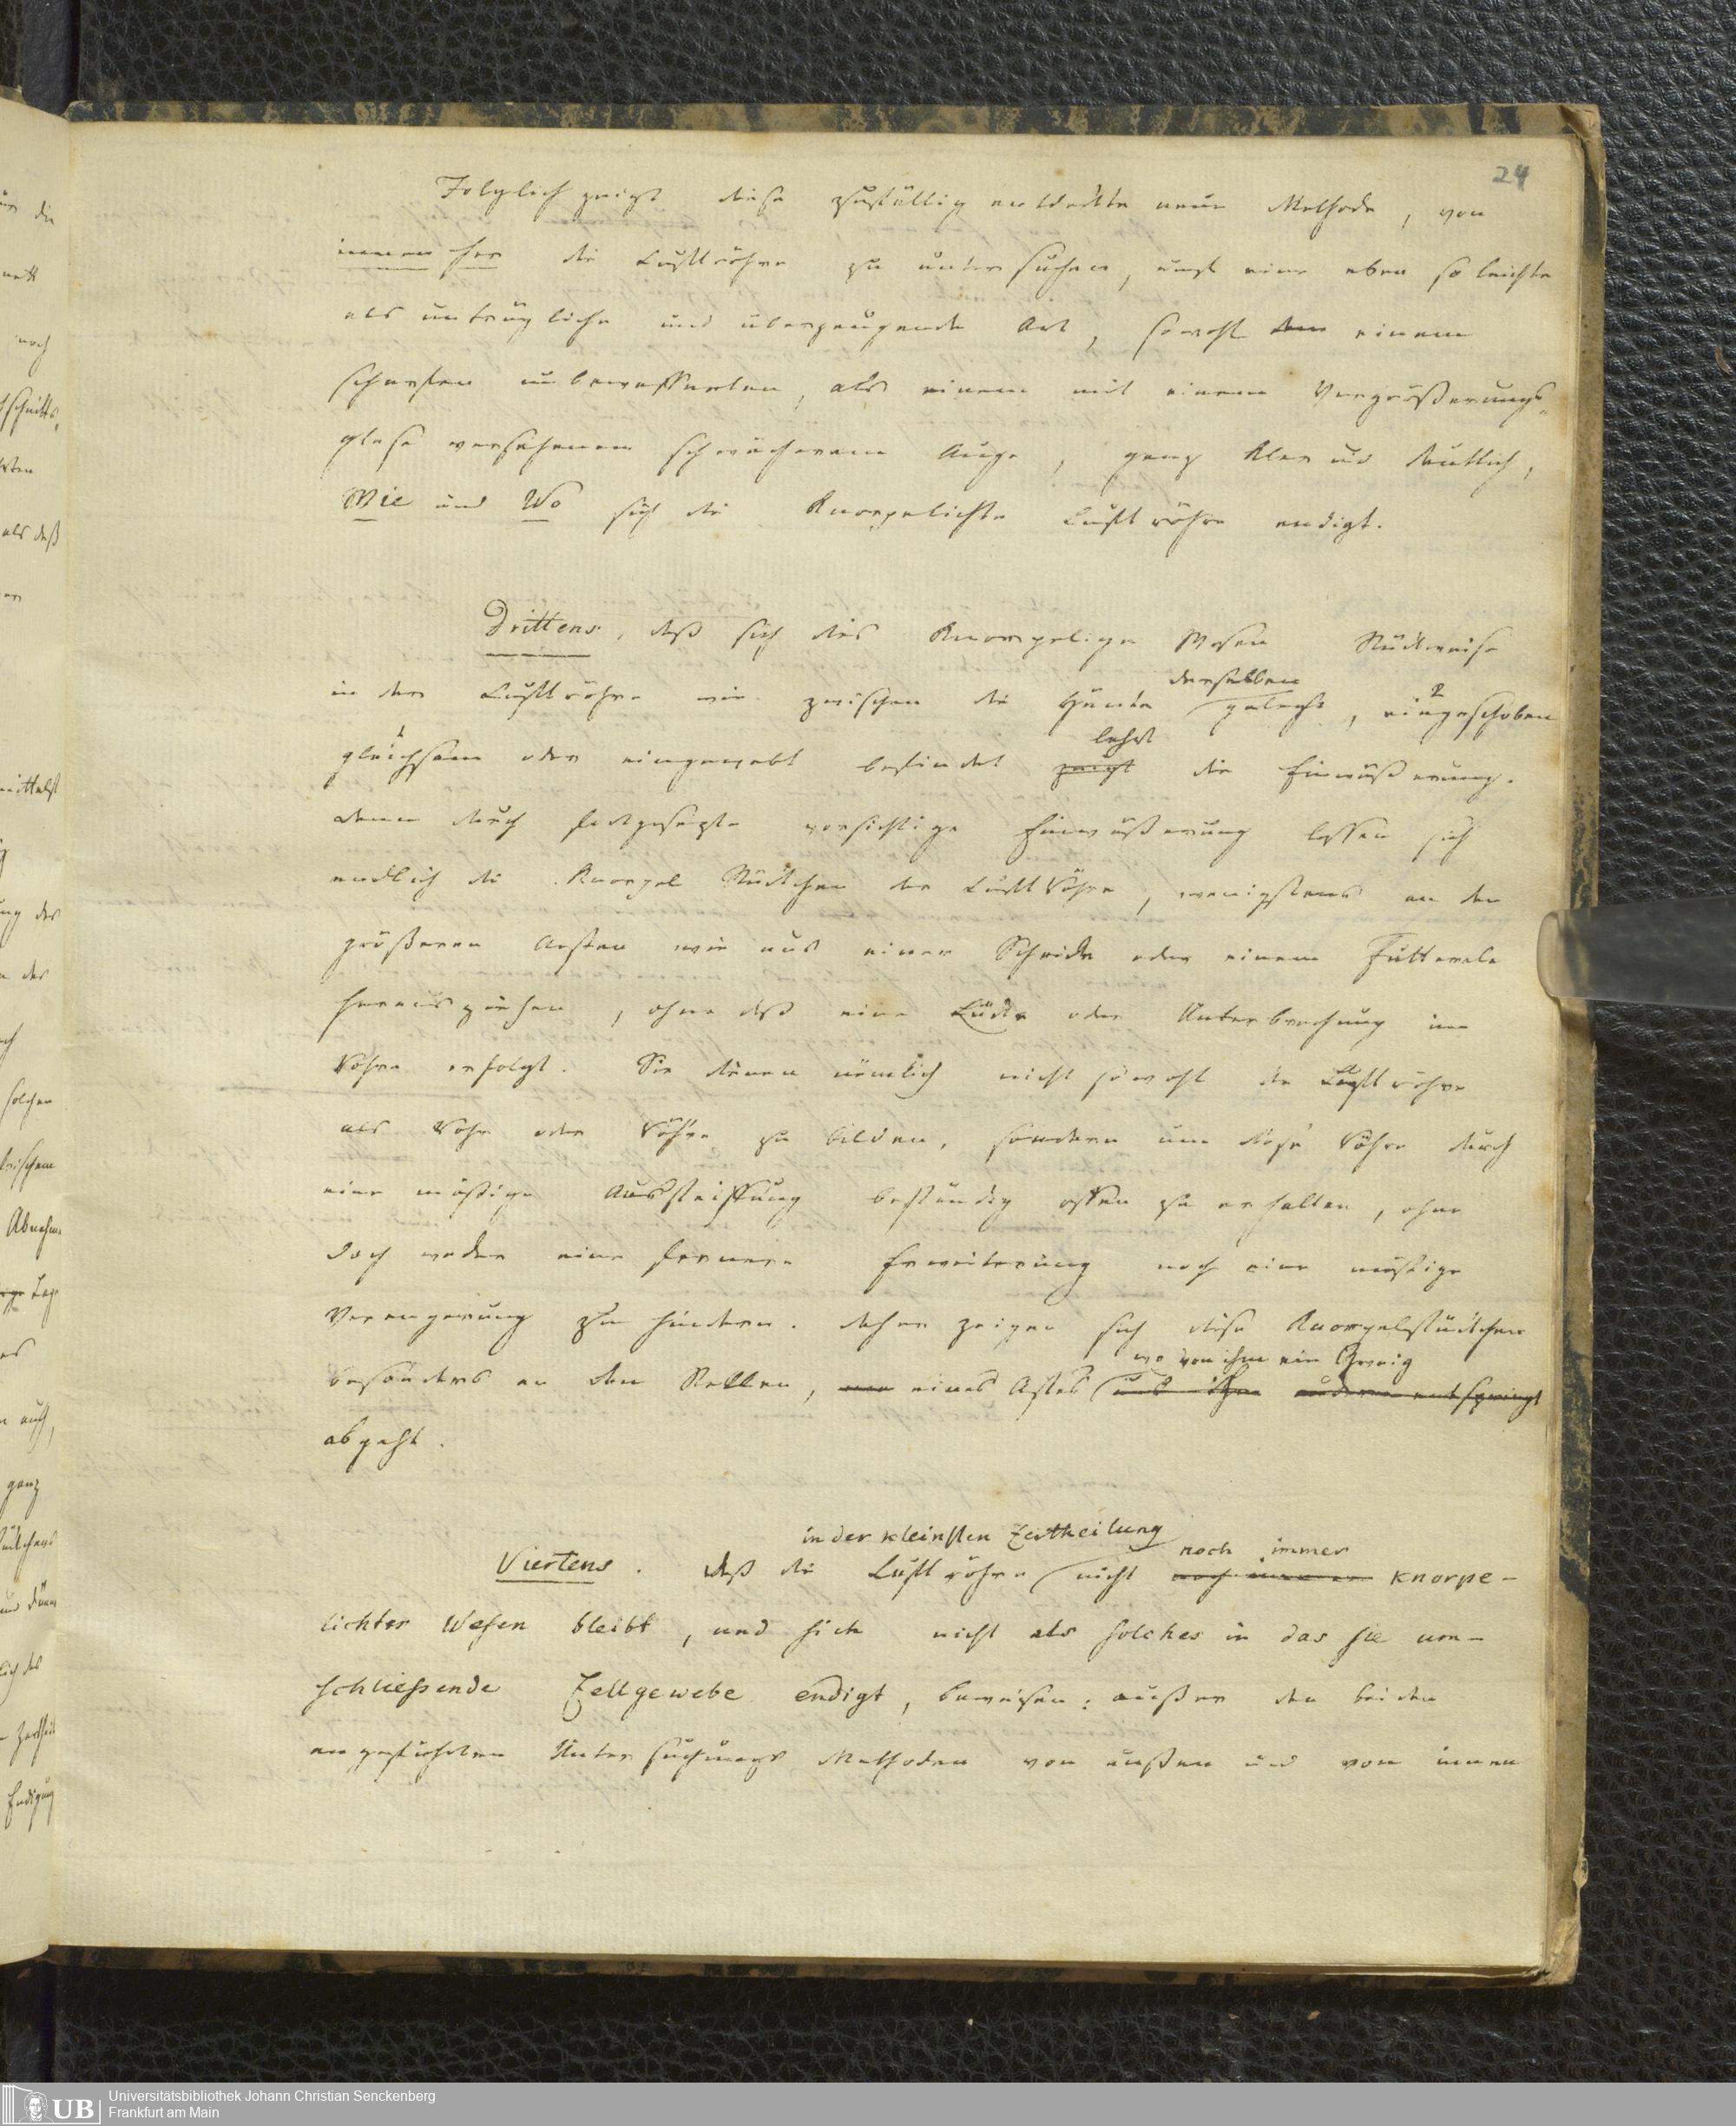 24
Folglich zeigt diese zufällig entdeckte neue Methode, von
innen her die Luftröhre zu untersuchen, auf eine eben so leichte
als untrügliche und überzeugende Art, sowohl dem einem
scharfen unbewaffneten, als einem mit einem Vergrößerungs-
glase versehenen schwächeren Auge, ganz klar und deutlich,
Wie und Wo sich die knorpelichte Luftröhre endigt.
Drittens, daß sich dies knorpelige Wesen Stückweise
derselben
in der Luftröhre wie zwischen die Häute gelegt, eingeschoben
lehrt
gleichsam oder eingewebt befindet zeigt die Einwäßerung.
denn durch fortgesezte vorsichtige Einwäßerung lassen sich
endlich die Knorpel Stückchen der Luftröhre, wenigstens an den
größeren Aesten wie aus einer Scheide oder einem Futterale
herausziehen, ohne daß eine Lücke oder Unterbrechung im
Rohre erfolgt. Sie dienen nämlich nicht sowohl die Luftröhre
als Rohr oder Röhre zu bilden, sondern um diese Röhre durch
eine mäßige Aussteiffung beständig offen zu erhalten, ohne
doch weder eine fernere Erweiterung noch eine
Verengerung zu hindern. daher zeigen sich diese Knorpelstückchen
wo von ihm ein Zweig
besonders an den Stellen, eines Astes aus ihm anderer entspringt
abgeht.
in der kleinsten Zertheilung
noch immer
Viertens. daß die Luftröhre nicht noch immer knorpe-
lichter Wesen bleibt, und sich nicht als solches in das sie um-
schließende Zellgewebe endigt, beweisen: außer den beiden
angeführten Untersuchungs Methoden von außen und von innen
Universitätsbibliothek Johann Christian Senckenberg
Frankfurt am Main
UB